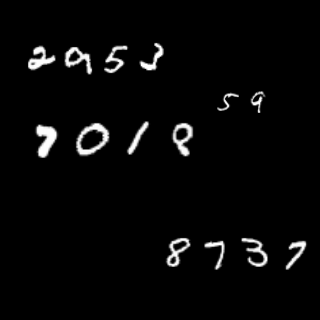 2953
59
7018
8737